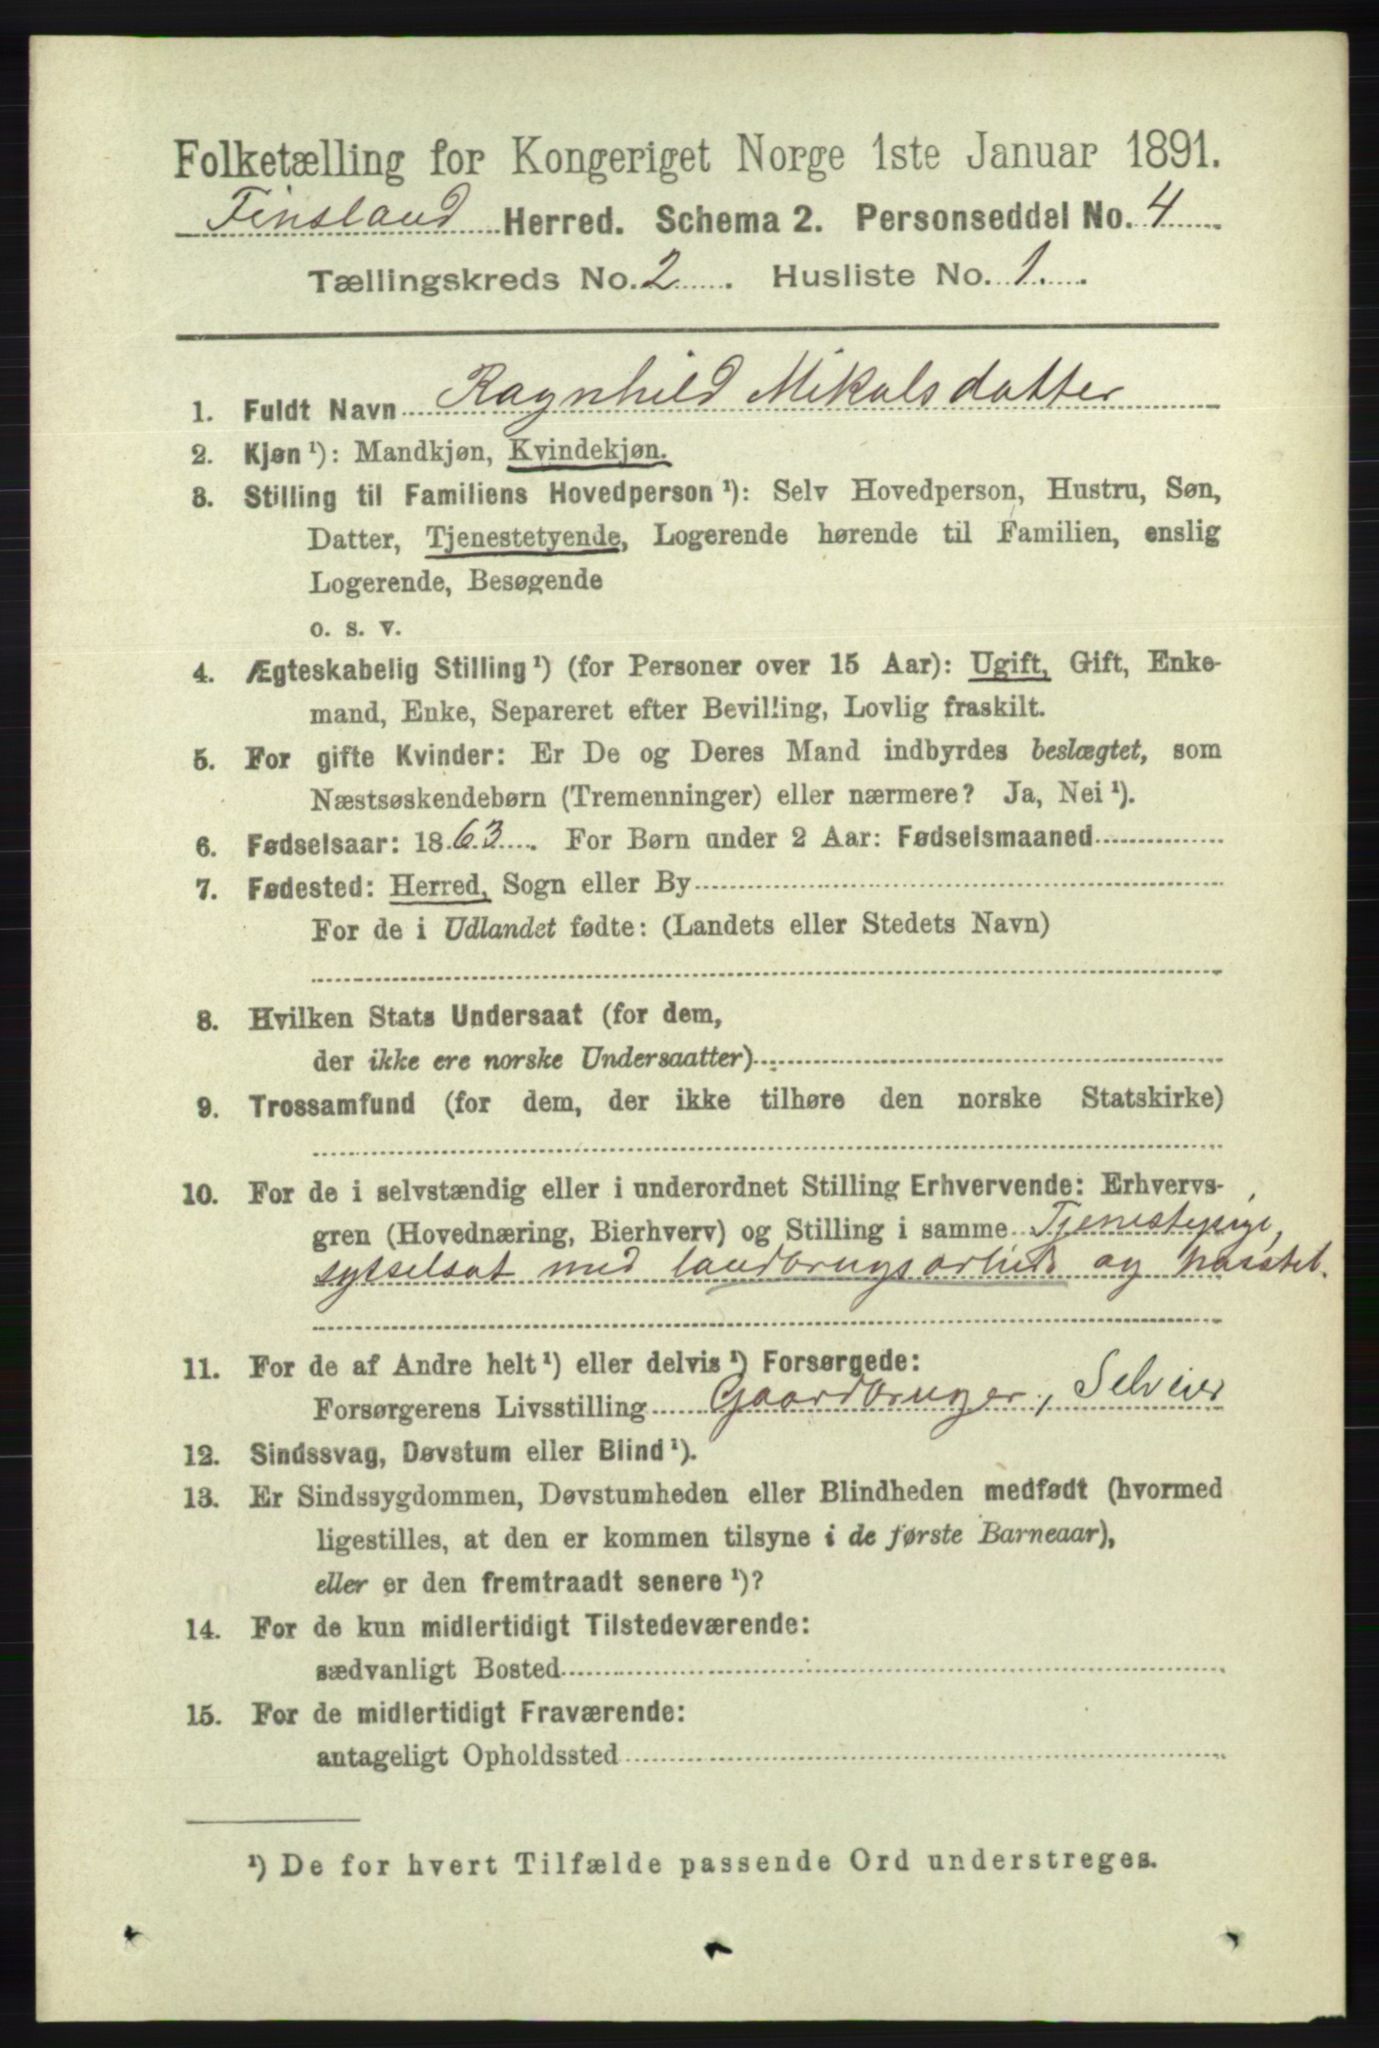 Folketælling for Kongeriget Norge 1ste Januar 1891.
Finsland Herred. Schema 2. Personseddel No. 4
Tællingskreds No. 2. Husliste No. 1.
1. Fuldt Navn Ragnhild Mikalsdatter
2. Kjøn ¹): Mandkjøn, Kvindekjøn.
3. Stilling til Familiens Hovedperson ¹): Selv Hovedperson, Hustru, Søn,
Datter, Tjenestetyende, Logerende hørende til Familien, enslig
Logerende, Besøgende
o. s. v.
4. Ægteskabelig Stilling ¹) (for Personer over 15 Aar): Ugift, Gift, Enke-
mand, Enke, Separeret efter Bevilling, Lovlig fraskilt.
5. For gifte Kvinder: Er De og Deres Mand indbyrdes beslægtet, som
Næstsøskendebørn (Tremenninger) eller nærmere? Ja, Nei ¹).
6. Fødselsaar: 1863. For Børn under 2 Aar: Fødselsmaaned
7. Fødested: Herred, Sogn eller By
For de i Udlandet fødte: (Landets eller Stedets Navn)
8. Hvilken Stats Undersaat (for dem,
der ikke ere norske Undersaatter)
9. Trossamfund (for dem, der ikke tilhøre den norske Statskirke)
10. For de i selvstændig eller i underordnet Stilling Erhvervende: Erhvervs-
gren (Hovednæring, Bierhverv) og Stilling i samme Tjenestepige,
sysselsat med landbrugsarbeide og husstel.
11. For de af Andre helt ¹) eller delvis ¹) Forsørgede:
Forsørgerens Livsstilling Gaardbruger, Selveier
12. Sindssvag, Døvstum eller Blind ¹).
13. Er Sindssygdommen, Døvstumheden eller Blindheden medfødt (hvormed
ligestilles, at den er kommen tilsyne i de første Barneaar),
eller er den fremtraadt senere ¹)?
14. For de kun midlertidigt Tilstedeværende:
sædvanligt Bosted
15. For de midlertidigt Fraværende:
antageligt Opholdssted
¹) De for hvert Tilfælde passende Ord understreges.